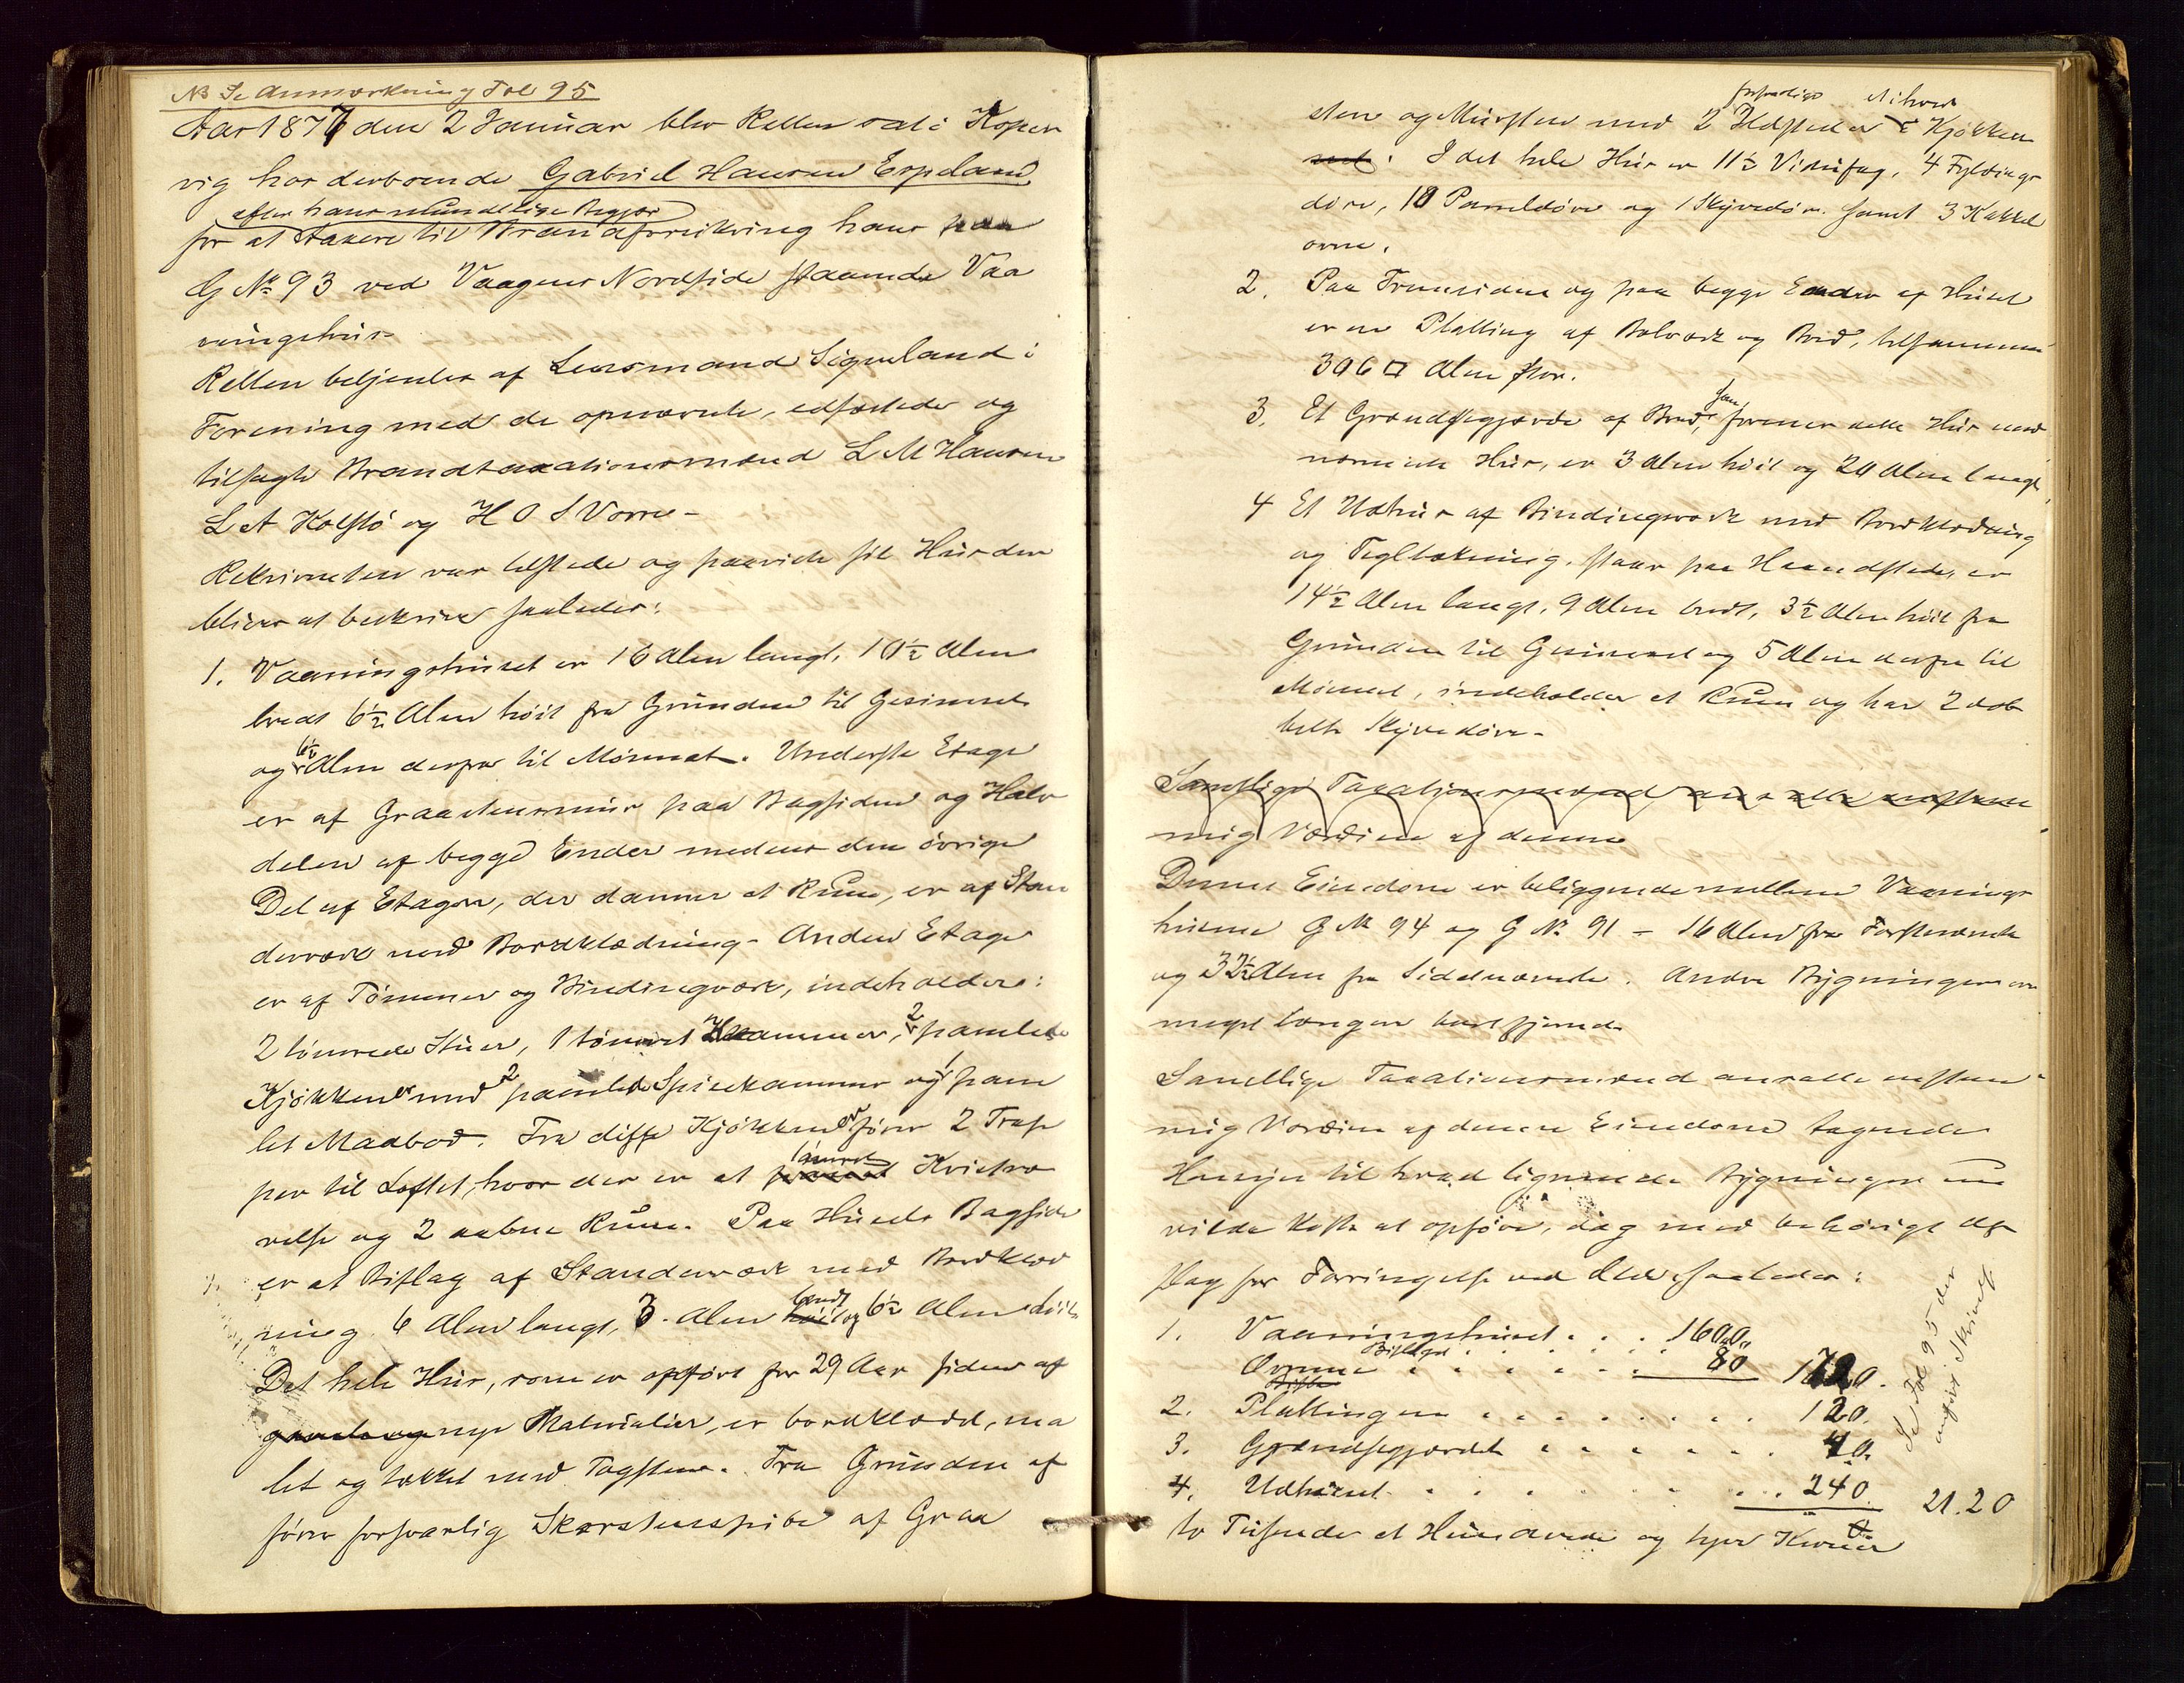 NB Se Anmærkning Fol 95
Aar 1877 den 2 Januar blev Retten sat i Koper
vig hos derboende Gabriel Hansen Espeland
efter hans mundtlige Begjær
for at taxere til Brandforsikring hans paa
G No 93 ved Vaagens Nordside staaende Vaa
ningshus-
Retten betjentes af Lensmand Sigveland i
Forening med de opnævnte, edfæstede og
tilsagte Brandtaxationsmænd L M Hansen
L A Kolstø og H O S Vorre-
Rekvirenten var tilstede og paaviste sit Hus der
bliver at beskrive saaledes:
1. Vaaningshuset er 16 Alen langt, 10½ Alen
bredt 6½ Alen høit fra Grunden til Gesimset
og 6½ Alen derfra til Mønnet. Underste Etage
er af Graastensmur paa Bagsiden og Halv
delen af begge Ender medens den øvrige
Del af Etagen, der danner et Rum, er af Stan
derværk med Bordklædning- Anden Etage
er af Tømmer og Bindingværk, indeholder:
2 tømrede Stuer, 1 tømret Kammer, 2 panlede
Kjøkkener med 2 panlede Spisekammer og 1 pan
let Madbod. Fra disse Kjøkkener fører 2 Trap
per til Loftet, hvor der er et tømret Kvistvæ
relse og 2 aabne Rum. Paa Husets Bagside
er et Bislag af Standerværk med Bordklæd
ning. 6 Alen langt, 3 Alen bredt og 6½ Alen høit
Det hele Hus, som er opført for 29 Aar siden af
gamle og nye Materialier, er bordklædd, ma
let og tækket med Tagsten. Fra Grunden af
fører forsvarlig Skorstenspibe af Graa
forsvarlige et i hvert
sten og Mursten med 2 Ildsteder i Kjøkken
I det hele Hus er 11½ Vindusfag, 4 Fyldings
døre, 10 Paneldøre og 1 Skyvedør. samt 3 Kakkel
ovne.
2. Paa Fremsiden og paa begge Ender af Huset
er en Platting af Bolværk og Bord, tilsammen
306 □ Alen stor.
3. Et Grændsegjærde af Bord, som forener dette Hus med
nærmeste Hus, er 3 Alen høit og 20 Alen langt
4 Et Udhus af Bindingværk med Bordklædning
og Tegltækning, staar paa Haandsteder, er
14½ Alen langt, 9 Alen bredt, 3½ Alen høit fra
Grunden til Gesimset og 5 Alen derfra til
Mønnet, indeholder et Rum og har 2 dob
belte Skyvedøre-
Samtlige Taxationsmænd enstem
mig Værdien af denne
Denne Eiendom er beliggende mellem Vaanings
husene G No 94 og G No 91 - 16 Alen fra Førstnævnte
og 32½ Alen fra Sidstnævnte. Andre Bygninger ere
meget længer bortfjernd-
Samtlige Taxationsmænd ansatte enstem
mig Værdien af denne Eiendom tagende
Hensyn til hvad lignende Bygninger nu
vilde koste at opføre, dog med behørigt Af
slag for Forringelse ved Ælde saaledes:
1. Vaaningshuset . . . 1600
Bislaget
Ovnene . . . . . . 80 1720.
2. Plattingen . . . . . . . . 120.
3. Grændsegjærdet . . . . . . 40.
4. Udhuset . . . . . . . 240 21.20
to Tusende et Hundrede og tyve Kroner
Se Fol 95 der
anført Skrivef